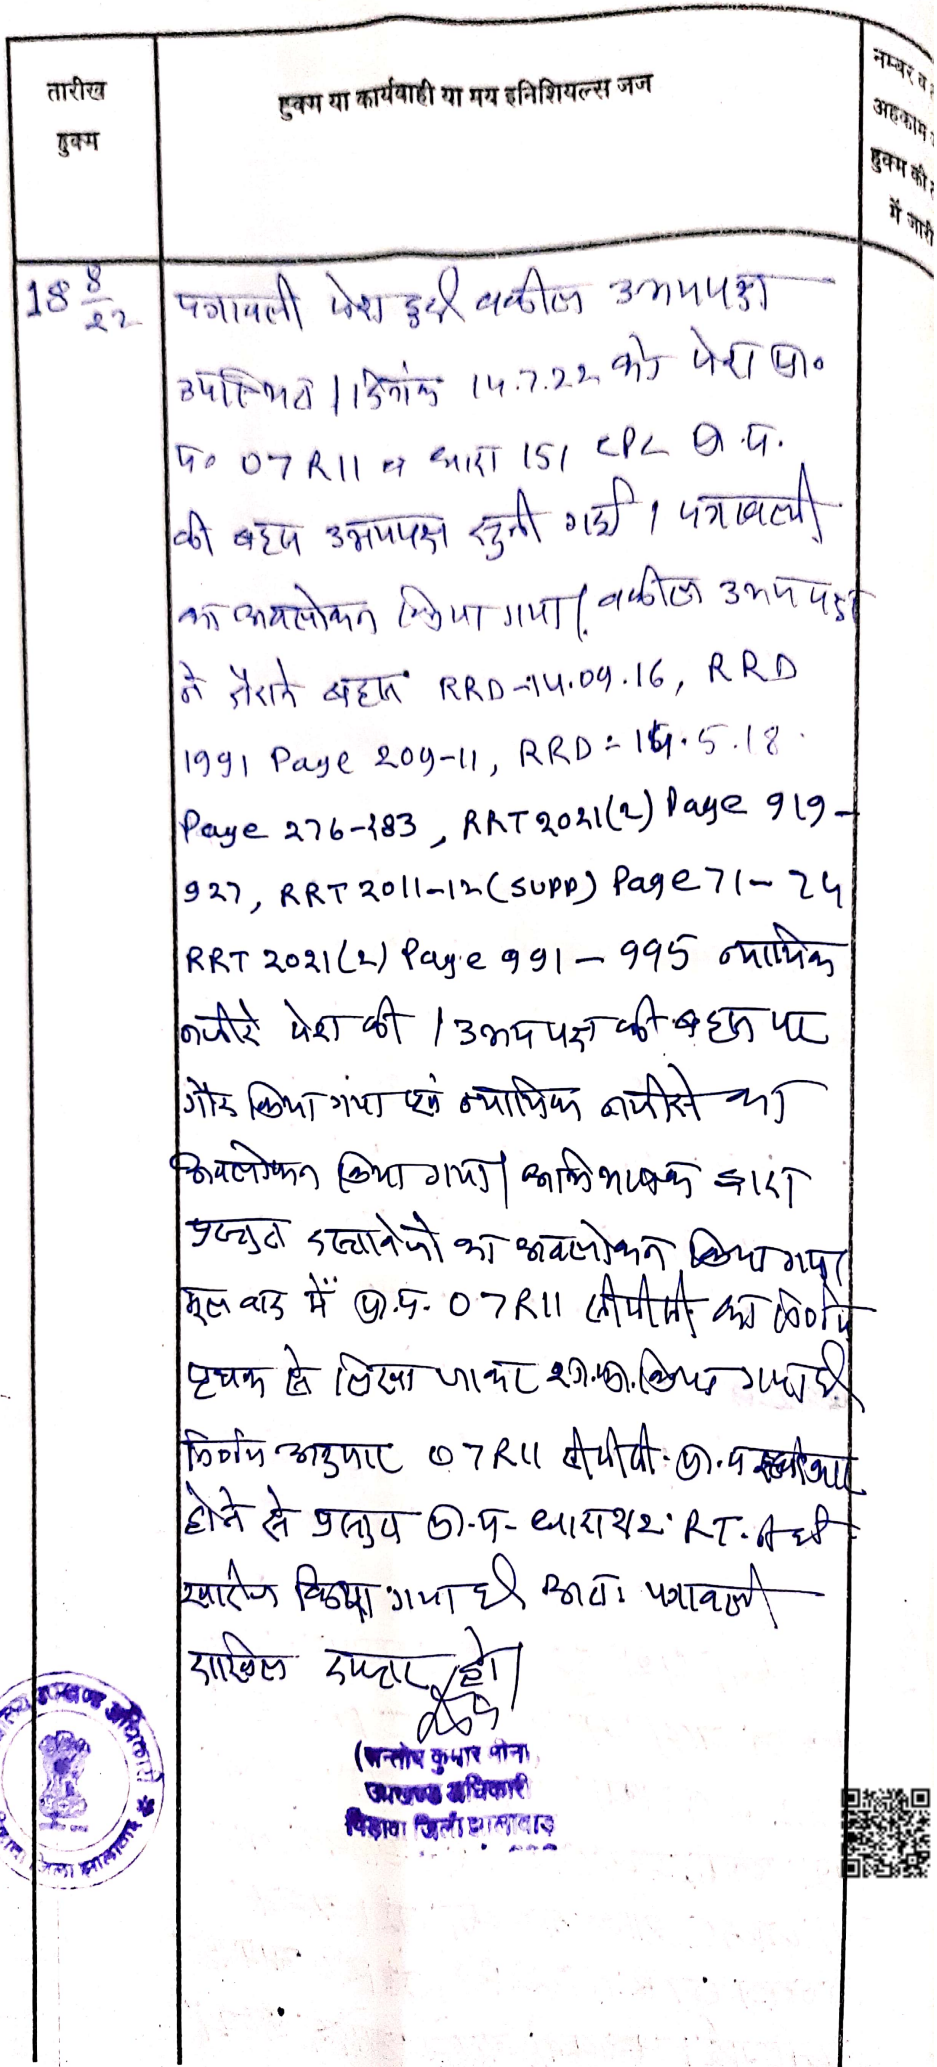 तारीख
हुक्म
हुक्म या कार्यवाही या मय इनिशियल्स जज
नम्बर व
अहकाम
हुक्म की
में जारी
18 8/22
पत्रावली पेश हुई वकील उभयपक्ष
उपस्थित । दिनांक 14.7.22 को पेश प्रा०
प० 07 R11 व धारा 151 CPC प्रा.प.
की बहस उभयपक्ष सुनी गई । पत्रावली
का अवलोकन किया गया । वकील उभयपक्ष
ने दौराने बहस RRD-14.09.16, RRD
1991 Page 209-11, RRD = 15.5.18
Page 276-283, RRT 2021(2) Page 919-
927, RRT 2011-12 (SUPP) Page 71-74
RRT 2021(2) Page 991-995 न्यायिक
नजीरे पेश की । उभयपक्ष की बहस पर
गौर किया गया एवं न्यायिक नजीरो का
अवलोकन किया गया । अभिभाषक द्वारा
प्रस्तुत दस्तावेजो का अवलोकन किया गया
मूल वाद में प्रा.प. 07 R11 सीपीसी का निर्णय
पृथक से लिखा जाकर शा.फा. किया गया है
निर्णय अनुसार 07 R11 सीपीसी प्रा.प स्वीकार
होने से प्रस्तुत प्रा.प. धारा 212 RT. A भी
खारीज किया गया है अतः पत्रावली
दाखिल दफ्तर हो ।
(सन्तोष कुमार मीना)
उपखण्ड अधिकारी
पिडावा जिला झालावाड
उपखण्ड अधिकारी
जिला झालावाड